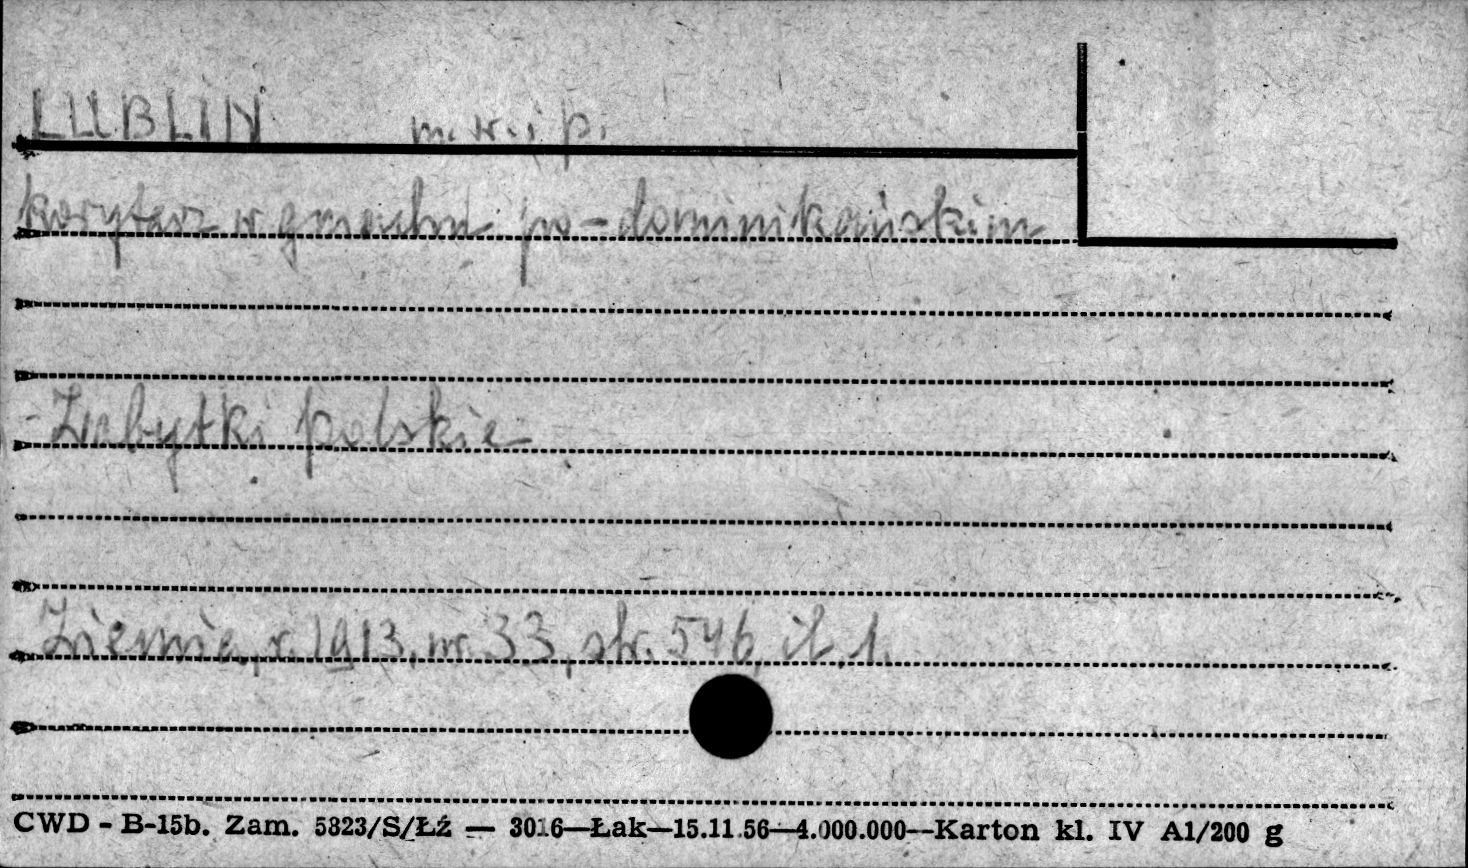 LUBLIN m. w. i p.
korytarz w gmachu po-dominikańskim
- Zabytki polskie
Ziemia, r. 1913, nr. 33, str. 546, il. 1.
CWD - B-15b. Zam. 5323/S/Łź — 3016—Łak—15.11.56—4.000.000—Karton kl. IV A1/200 g